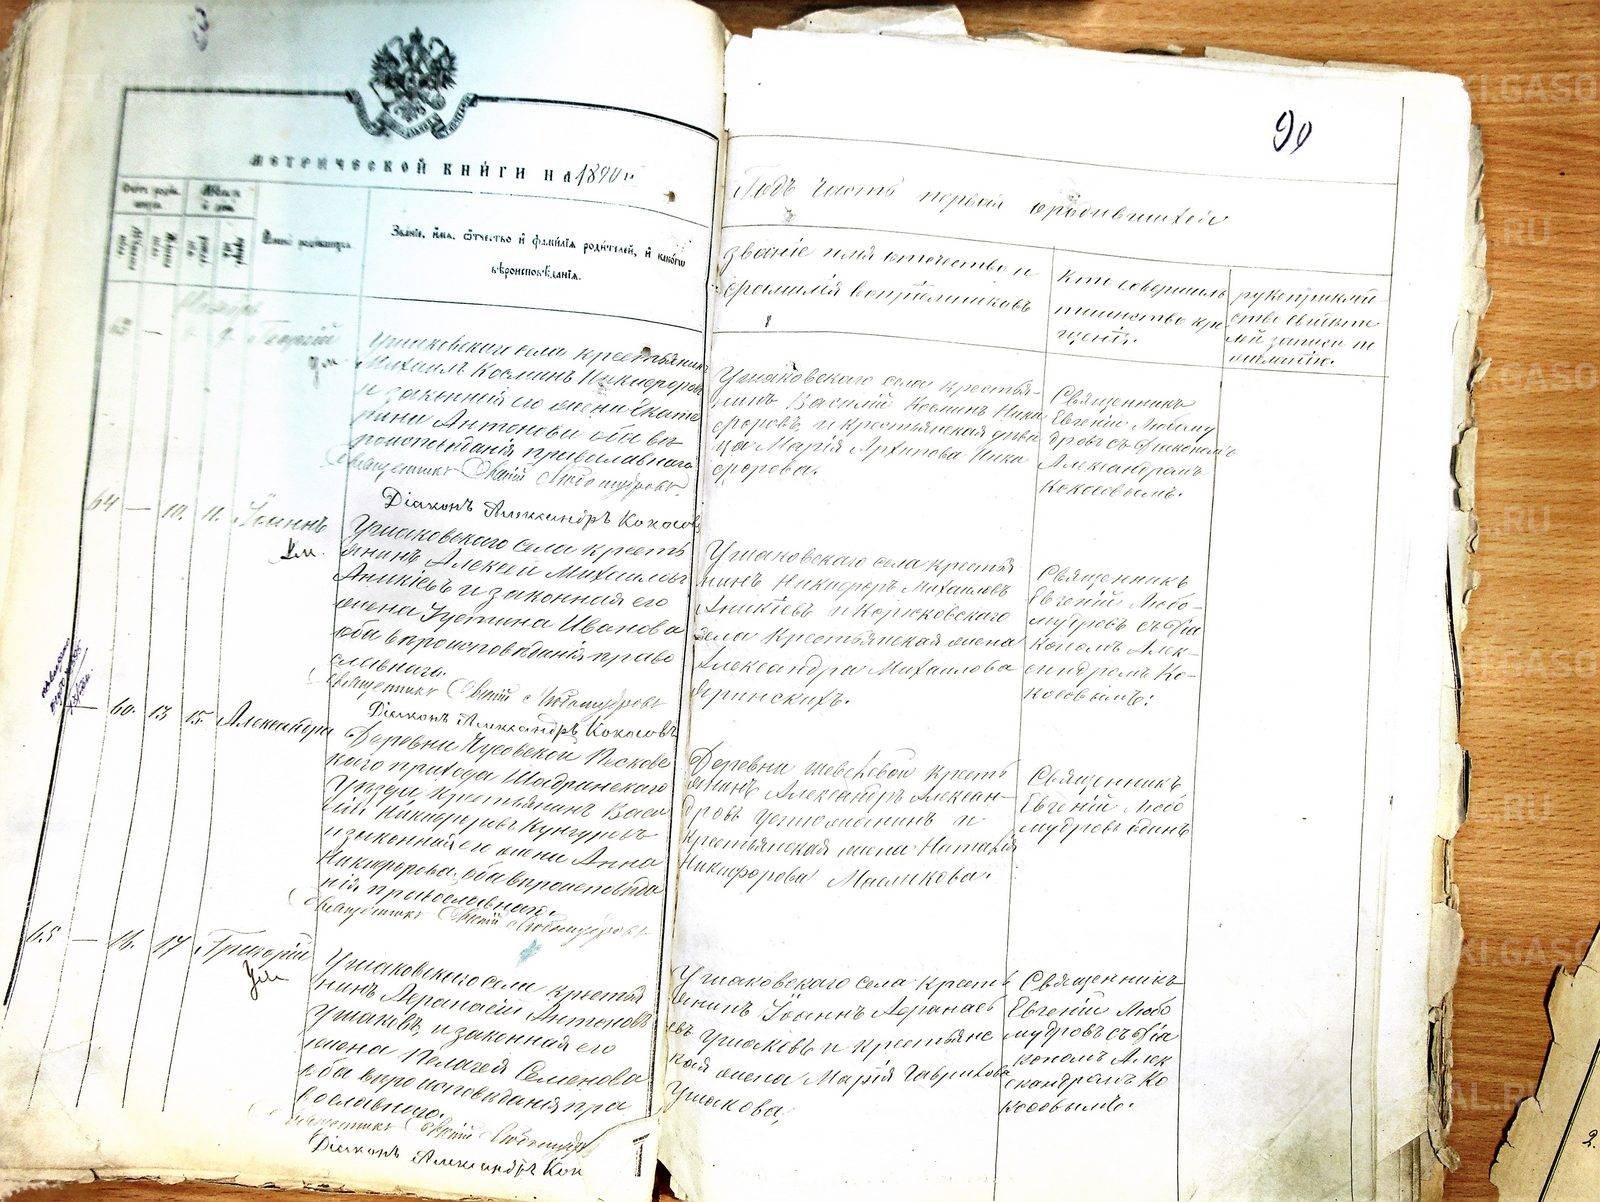 90
МЕТРИЧЕСКОЙ КНИГИ НА 1890 г.
Годъ Часть первая о родившихся
Имена родившихся.
Званіе, имя, отчество и фамилія родителей, и какого
вѣроисповѣданія.
званіе имя отчество и
фамилія воспріемниковъ
Кто совершалъ
таинство кре
щенія.
рукоприклад
ство свидѣте
лей записи по
желанію.
63 — 9 Георгій
ум.
Ушаковскаго села крестьянинъ
Михаилъ Косминъ Никифоровъ
и законная его жена Екате
рина Антонова оба вѣ
роисповѣданія православнаго
Священникъ Евгеній Любомудровъ.
Діаконъ Александръ Кокосовъ
Ушаковскаго села крестья-
нинъ Василій Косминъ Ники
форовъ и крестьянская дѣви
ца Марія Архипова Ники
форова.
Священникъ
Евгеній Любому
дровъ съ діакономъ
Александромъ
Кокосовымъ.
64 — 10. 11. Іоаннъ
ум.
Ушаковскаго села кресть
янинъ Алексѣй Михаиловъ
Аникіевъ и законная его
жена Устина Иванова
оба вѣроисповѣданія право
славнаго.
Священникъ Евгеній Любомудровъ
Діаконъ Александръ Кокосовъ
Ушаковскаго села крестья
нинъ Никифоръ Михаиловъ
Аникіевъ и Корюковскаго
села Крестьянская жена
Александра Михаилова
Священникъ
Евгеній Любо-
мудровъ съ діа
кономъ Алек-
сандромъ Ко-
косовымъ.
— 60. 13 15. Александра
Деревни Чусовской Песковс
каго прихода Шадринскаго
Уѣзда Крестьянинъ Васи
лій Никифоровъ Кунгуровъ
и законная его жена Анна
Никифорова, оба вѣроисповѣда
нія православнаго.
Священникъ Евгеній Любомудровъ.
Деревни Шевелевой кресть
янинъ Александръ Алексан-
дровъ Устюжанинъ и
крестьянская жена Наталія
Никифорова Масликова.
Священникъ
Евгеній Любо
мудровъ одинъ
65 — 16. 17 Григорій
ум
Ушаковскаго села крестья
нинъ Аѳанасій Антоновъ
Ушаковъ и законная его
жена Пелагея Семенова
оба вѣроисповѣданія пра
вославнаго.
Священникъ Евгеній Любомудровъ
Діаконъ Александръ Кок
Ушаковскаго села кресть
янинъ Іоаннъ Аѳанась
евъ Ушаковъ и крестьянс
кая жена Марія Гаврилова
Ушакова,
Священникъ
Евгеній Любо
мудровъ съ діа
кономъ Алек
сандромъ Ко
косовымъ.